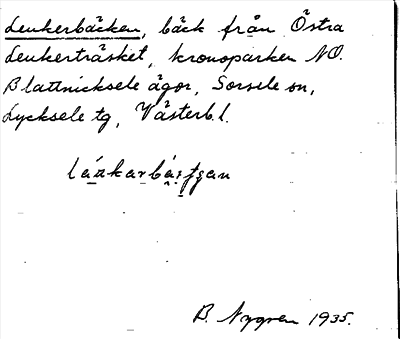 Leukerbäcken, bäck från Östra
Leukerträsket, kronoparken NO.
Blattnicksele ägor, Sorsele sn,
Lycksele tg, Västerb.l.
B. Nygren 1935.